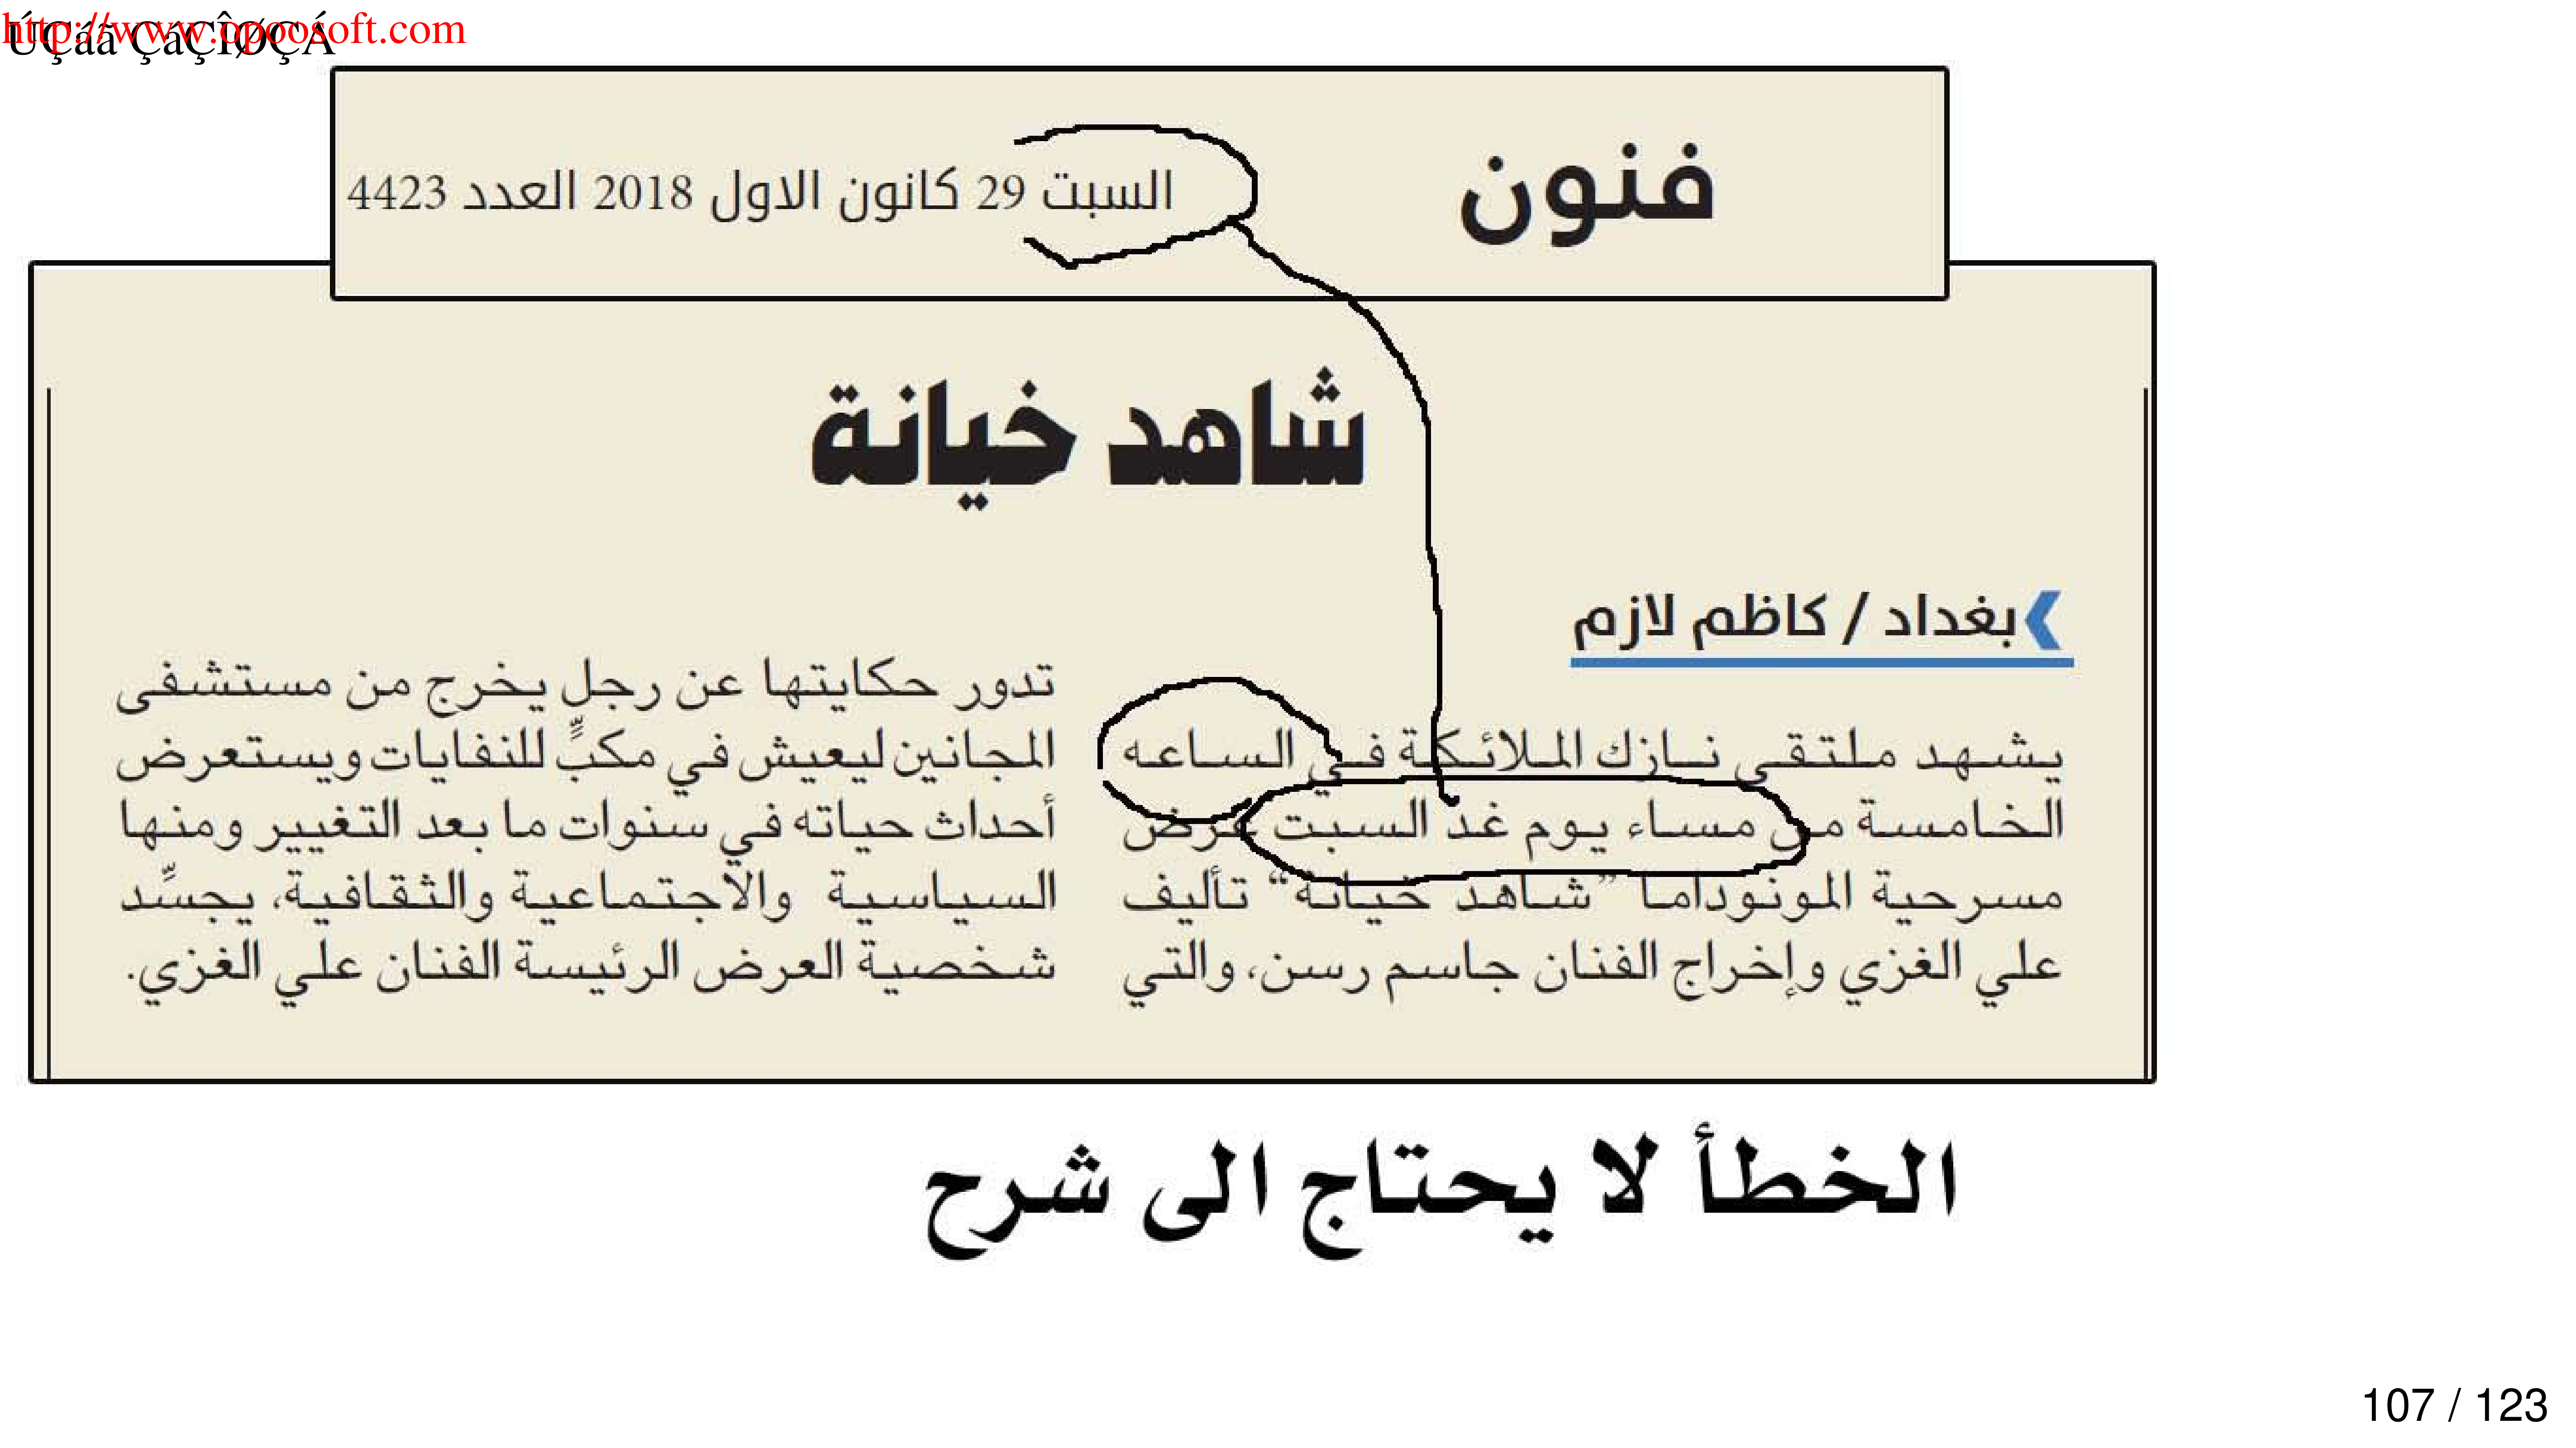 http://www.opoosoft.com
ÚÇáã ÇáÇÎØÇÁ
فنون
السبت 29 كانون الاول 2018 العدد 4423
شاهد خيانة
بغداد / كاظم لازم
يشهد ملتقى نازك الملائكة في الساعه
الخامسة من مساء يوم غد السبت عرض
مسرحية المونوداما ”شاهد خيانة“ تأليف
علي الغزي وإخراج الفنان جاسم رسن، والتي
تدور حكايتها عن رجل يخرج من مستشفى
المجانين ليعيش في مكبٍّ للنفايات ويستعرض
أحداث حياته في سنوات ما بعد التغيير ومنها
السياسية والاجتماعية والثقافية، يجسِّد
شخصية العرض الرئيسة الفنان علي الغزي.
الخطأ لا يحتاج الى شرح
107 / 123